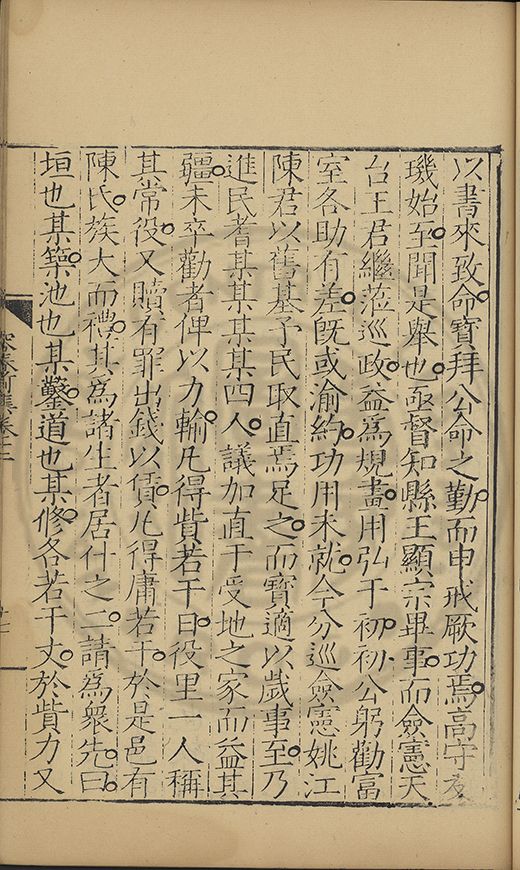 以書來致命寶拜公命之勤而申戒厥功焉高守友
璣始至聞是舉也亟督知縣王顯宗畢事而僉憲天
台王君繼蒞巡政益爲規畫用弘于初初公躬勸富
室各助有差既或渝約功用未就今分巡僉憲姚江
陳君以舊基予民取直焉足之而寶適以歲事至乃
進民耆某某某某四人議加直于受地之家而益其
疆未卒勸者俾以力輸凡得貲若干曰役里一人稱
其常役又贖有罪出錢以僨凡得庸若干於是邑有
陳氏族大而禮其爲諸生者居什之二請爲衆先曰
垣也某築池也某鑿道也某修各若干丈於貲力又